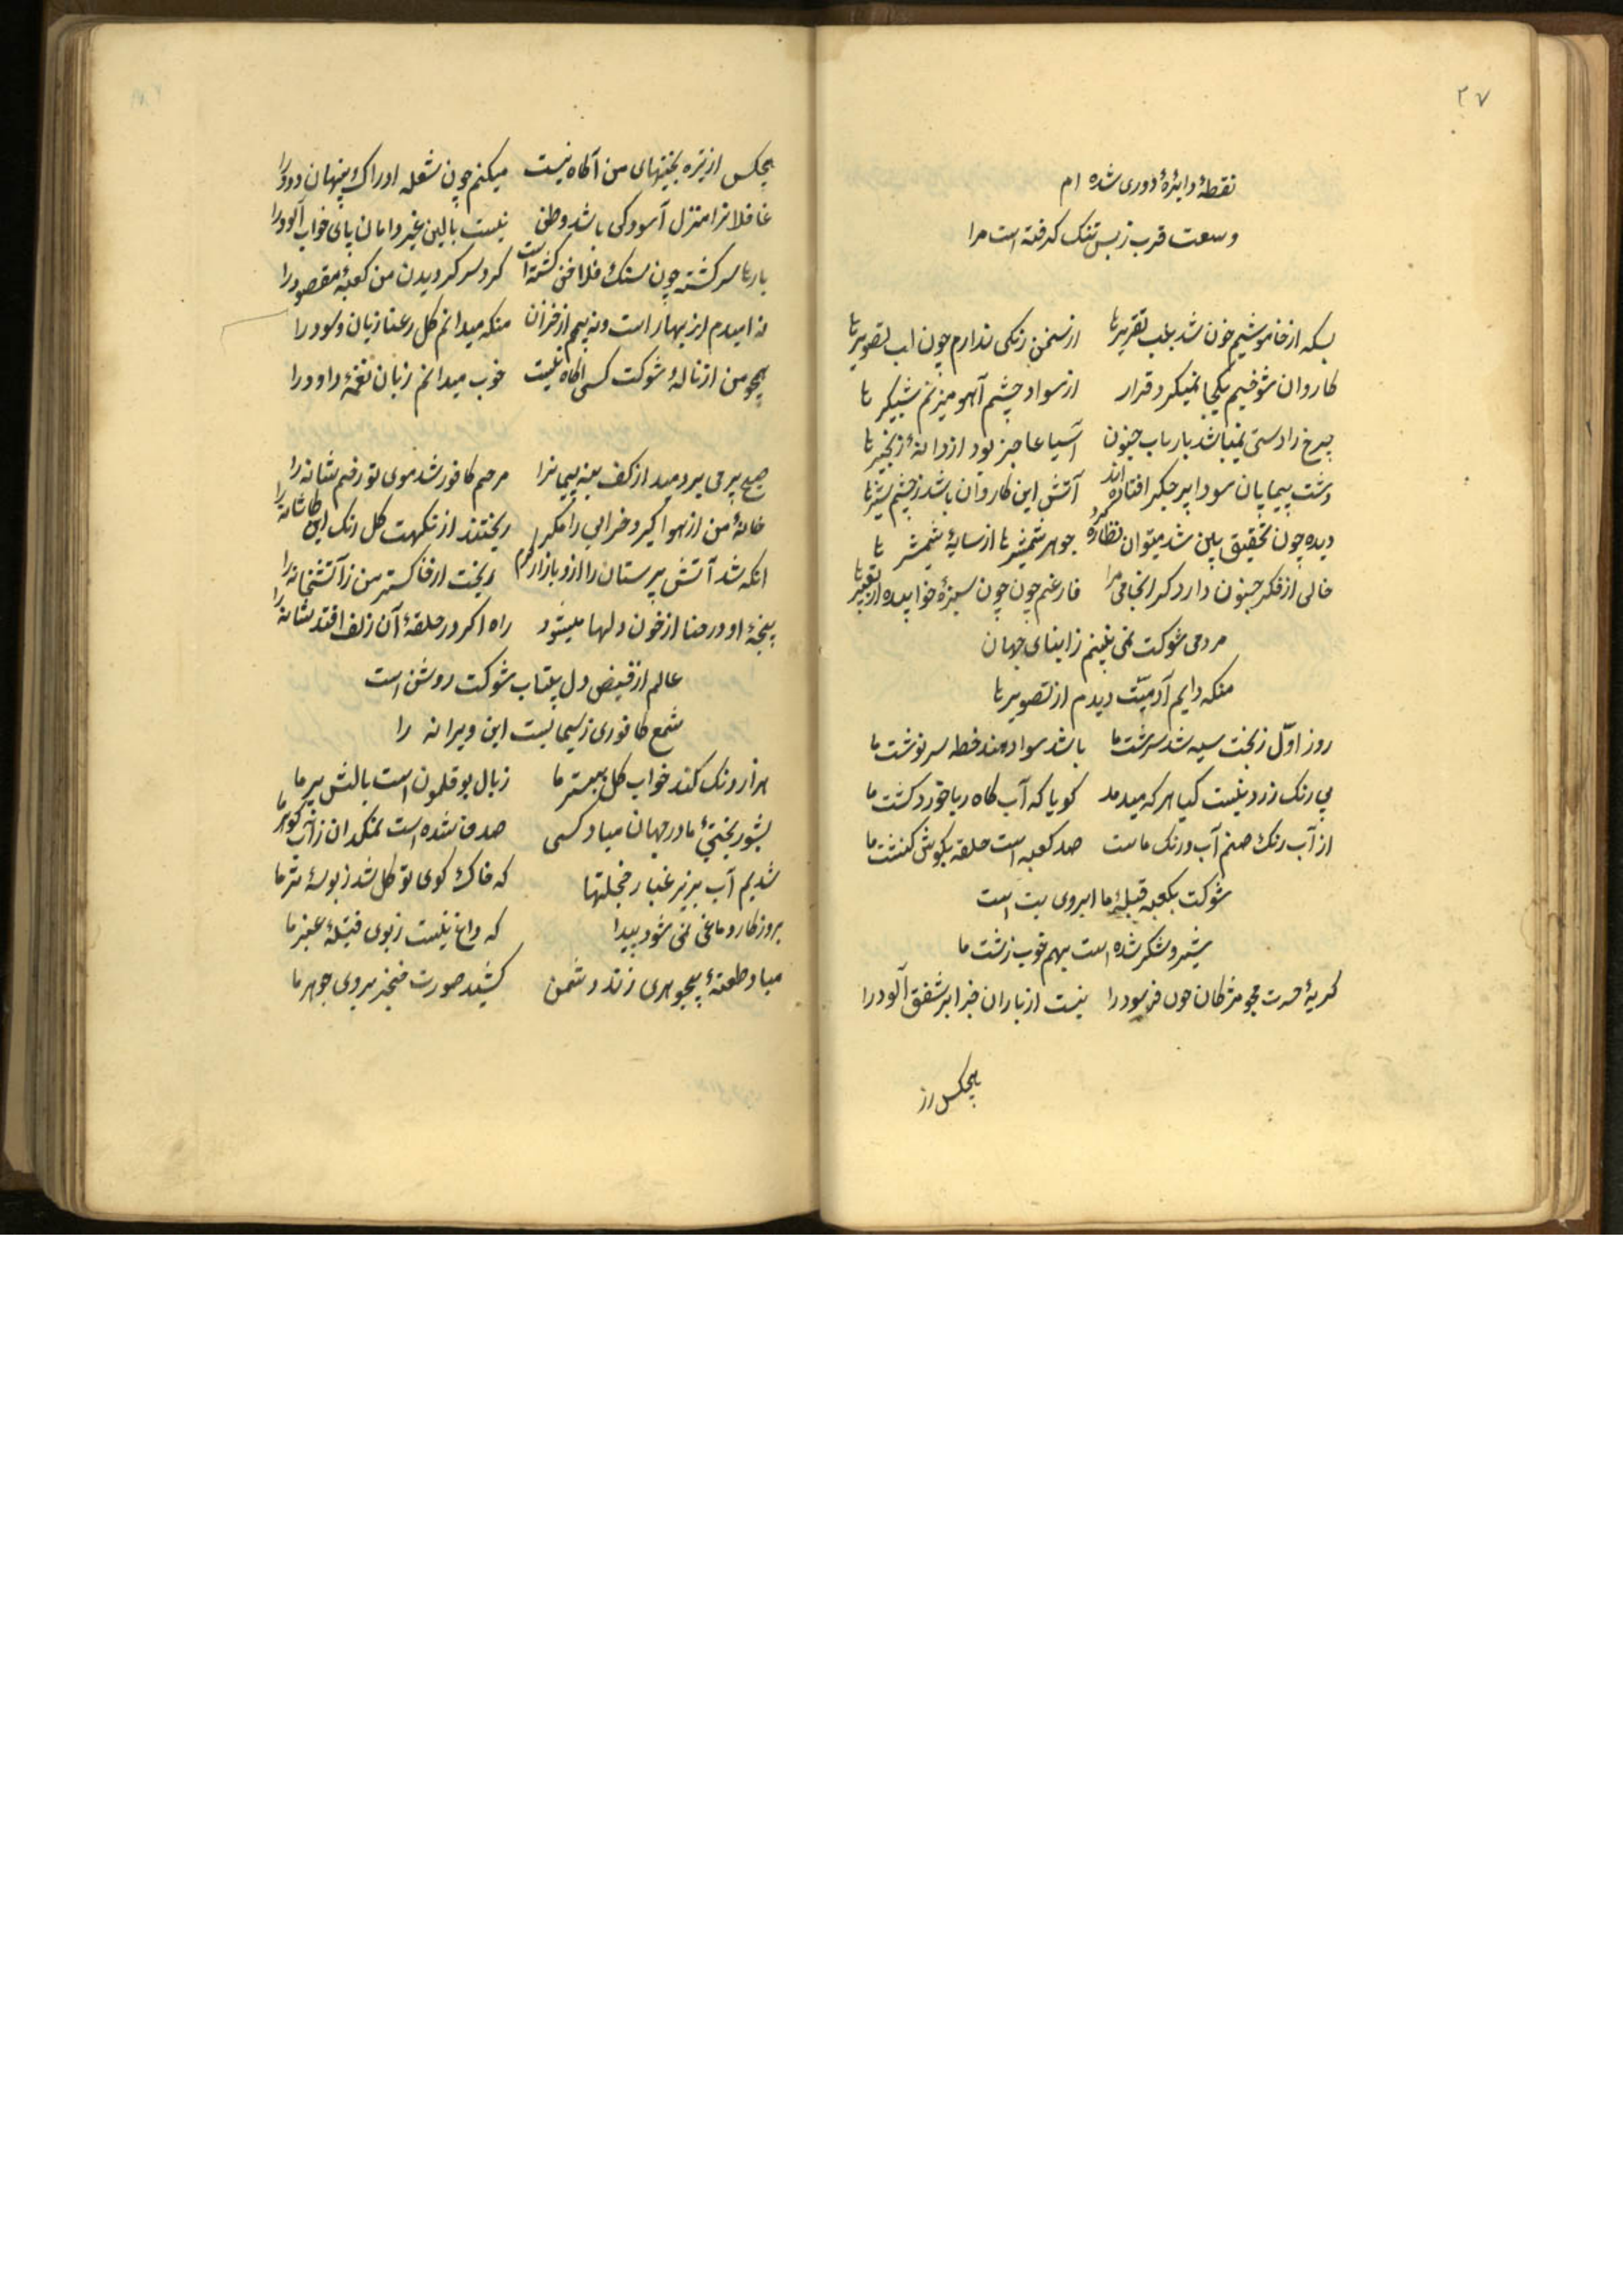 ۲۷
نقطهٔ دایرهٔ دوری شده ام
وسعت قرب ز بس تنک گرفته است مرا
بسکه از خاموشیم خون شد بلب تقریرها از سخن رنکی ندارم چون لب تصویرها
کاروان شوخیم یکجا نمیکرد قرار از سواد چشم آهو میزنم شبگیر ها
چرخ را دستی نمیباشد بارباب جنون آسیا عاجز بود از دانهٔ زنجیرها
دشت پیمایان سودا بر جگر افتاده اند آتش این کاروان باشد ز چشم شیرها
دیده چون تحقیق بین شد میتوان نظاره کرد جوهر شمشیرها از سایهٔ شمشیر ها
خالی از فکر جنون دارد کرانجامی مرا فارغم چون سبزهٔ خوابیده از تعبیرها
مردمی شوکت نمی بینم ز ابنای جهان
منکه دایم آدمیّت دیدم از تصویرها
روز اوّل ز بخت سیه شد سرشت ما باشد سواد هند خط سرنوشت ما
بی رنک زرد نیست کیا هر که میدمد کویا که آب کاه ربا خورد کشت ما
از آب رنک صنم آب و رنک ماست صد کعبه است حلقه بکوش کنشت ما
شوکت بکعبه قبلهٔ ما ابروی بت است
شیر و شکر شده است بهم خوب زشت ما
کریهٔ حسرت مجو مژکان خون فرسود را نیست از باران خبر ابر شفق آلود را
هیچکس از
هیچکس از تیره بختیهای من آکاه نیست میکنم چون شعله ادراک پنهان دود را
غافلانرا منزل آسودکی باشد وطن نیست بالین غیر دامان پای خواب آلود را
بارها سرکشته چون سنک فلاخن کشته است کرد سر کردیدن من کعبهٔ مقصود را
نه امیدم از بهار است و نه بیم از خزان منکه میدانم کل رعنا زیان و سود را
همچو من از نالهٔ شوکت کسی آکاه نیست خوب میدانم زبان نغمهٔ داود را
صبح پیری بردمید از کف بنه پیمانرا مرحم کافور شد موی تو زخم شانه را
خانهٔ من از هوا کیرد خرابی را مکر ریختند از نکهت کل رنک این کاشانه را
آنکه شد آتش پرستان را ازو بازار کرم ریخت از خاکستر من ز آتشخانه را
پنجهٔ او در حنا از خون دلها میشود راه اکر در حلقهٔ آن زلف افتد شانه را
عالم از فیض دل بیتاب شوکت روشن است
شمع کافوری ز سیمابست این ویرانه را
هزار رنک کند خواب کل ببستر ما ز بال بوقلمون است بالش پر ما
بشور بختی ما در جهان مباد کسی صدف شده است نمکدان ز آب کوهر ما
شدیم آب بزیر غبار خجلتها که خاک کوی تو کل شد ز بوسهٔ تر ما
بروزکار دماغی نمی شود پیدا که داغ نیست ز بوی فتیلهٔ عنبر ما
مباد طعنهٔ بیجوهری زند دشمن کشید صورت خنجر بروی جوهر ما